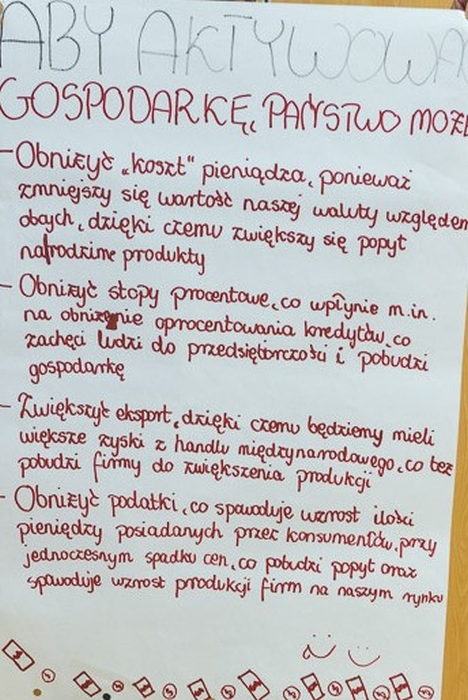 ABY AKTYWOWA
GOSPODARKĘ, PAŃSTWO MOŻE
- Obniżyć „koszt" pieniądza, ponieważ
zmniejszy się wartość naszej waluty względem
obcych, dzięki czemu zwiększy się popyt
na rodzime produkty
- Obniżyć stopy procentowe, co wpłynie m.in.
na obniżenie oprocentowania kredytów, co
zachęci ludzi do przedsiębiorczości i pobudzi
gospodarkę
- Zwiększyć eksport, dzięki czemu będziemy mieli
większe zyski z handlu międzynarodowego, co też
pobudzi firmy do zwiększenia produkcji
- Obniżyć podatki, co spowoduje wzrost ilości
pieniędzy posiadanych przez konsumentów, przy
jednoczesnym spadku cen, co pobudzi popyt oraz
spowoduje wzrost produkcji firm na naszym rynku